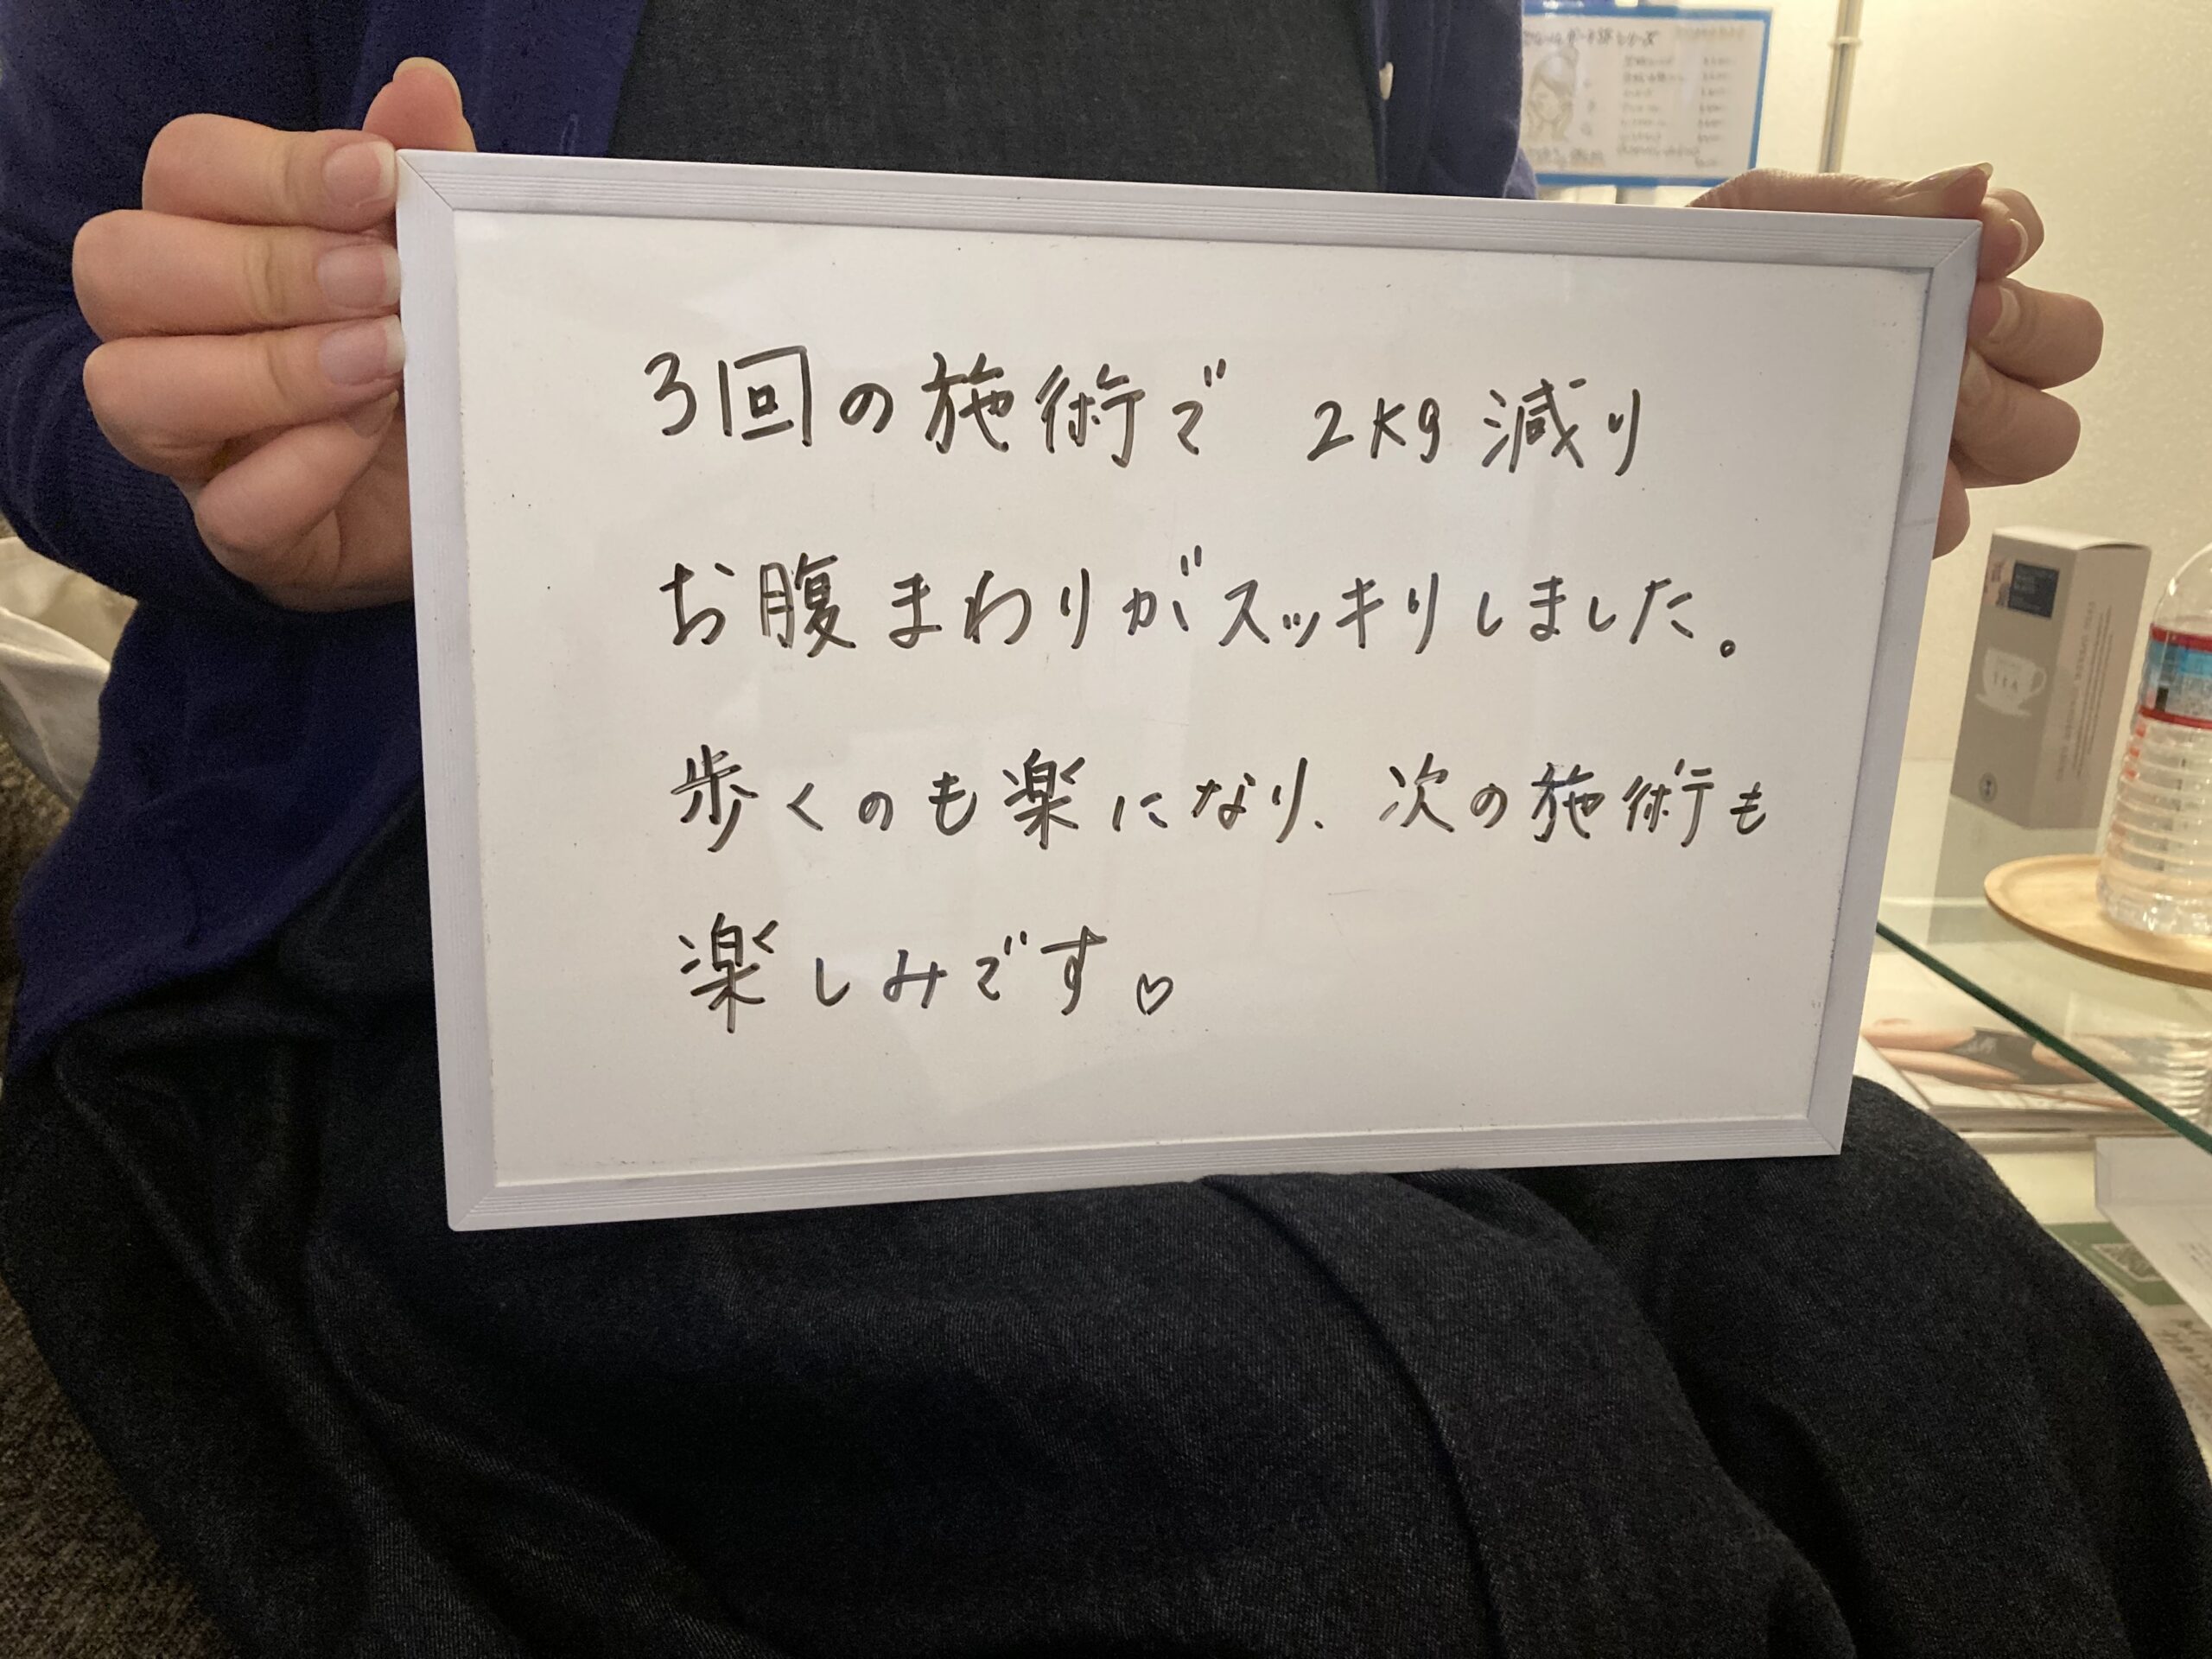 3回の施術で 2Kg減り
お腹まわりがスッキリしました。
歩くのも楽になり、次の施術も
楽しみです♡
TEA